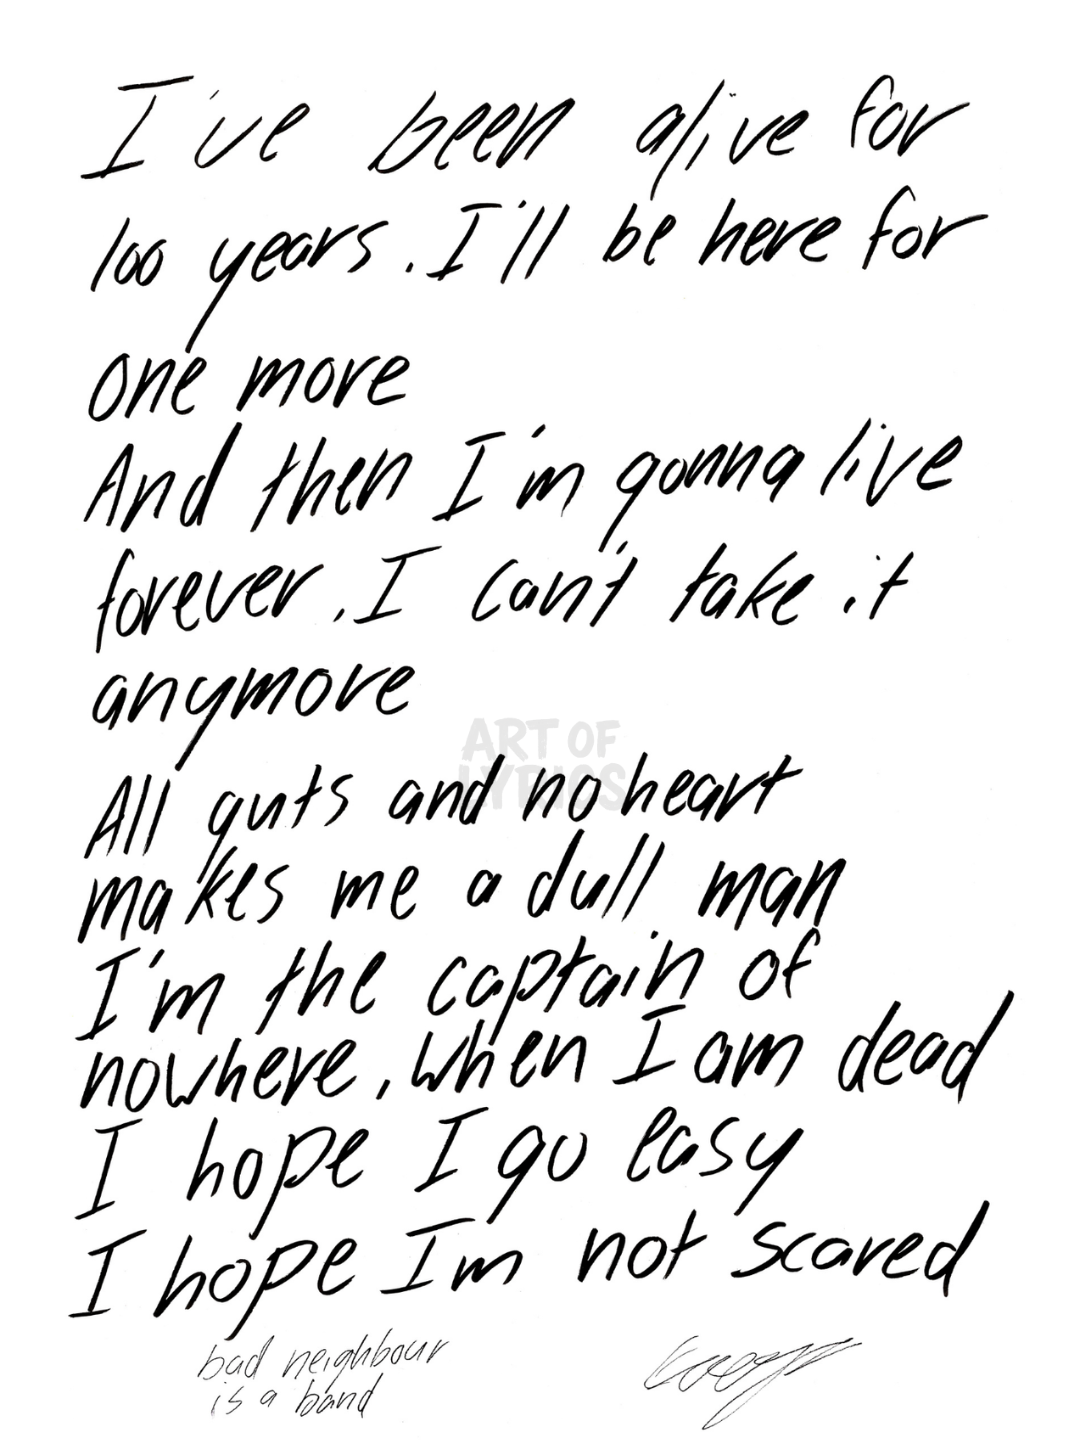 I've been alive for
100 years. I'll be here for
one more
And then I'm gonna live
forever. I can't take it
anymore
ART OF
LYRICS
All guts and no heart
makes me a dull man
I'm the captain of
nowhere, when I am dead
I hope I go easy
I hope Im not scared
bad neighbour
is a band